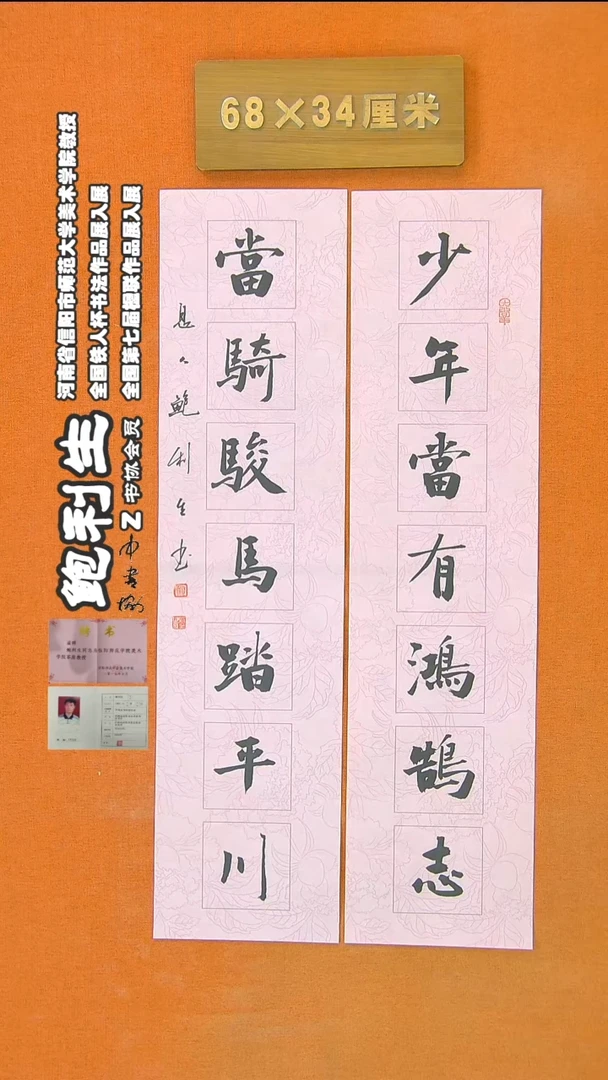 68×34厘米
少年當有鴻鵠志
當騎駿馬踏平川
鮑利生书
河南省信阳市师范大学美术学院教授
全国铁人杯书法作品展入展
全国第七届楹联作品展入展
鲍利生
中书协
书协会员
聘书